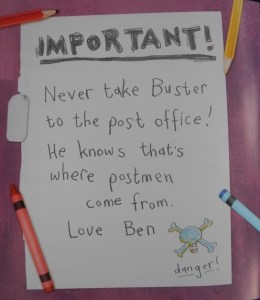 IMPORTANT!
Never take Buster
to the post office!
He knows that's
where postmen
come from.
Love Ben
danger!